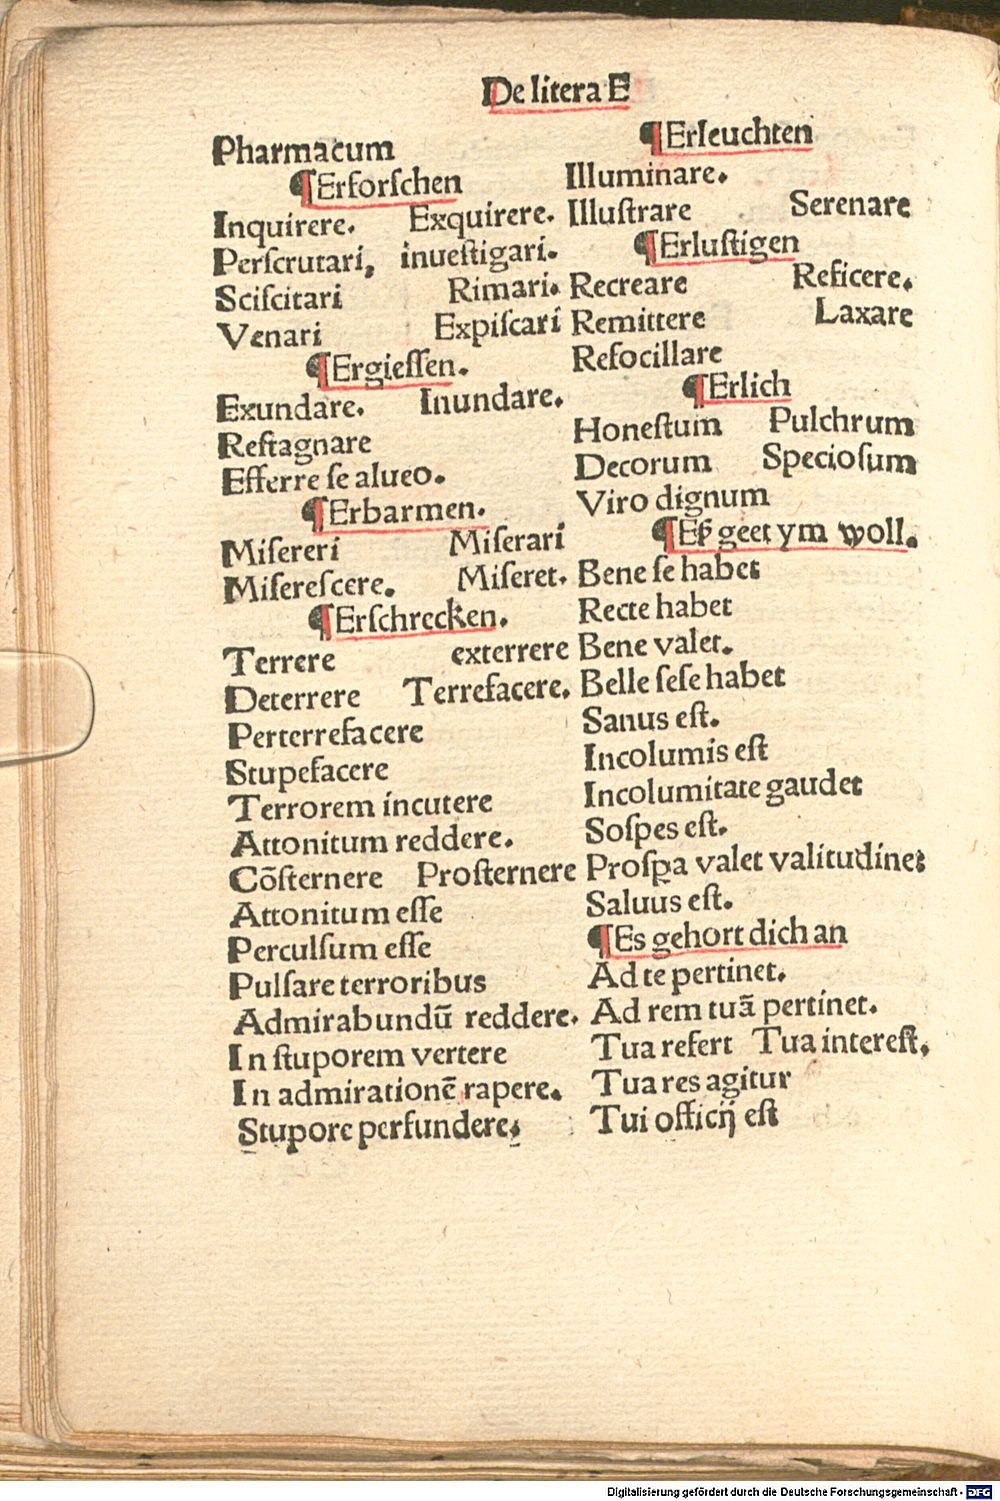 De litera E
Pharmacum
¶Erforſchen
Inquirere. Exquirere.
Perſcrutari, inueſtigari.
Sciſcitari Rimari.
Venari Expiſcari
¶Ergieſſen.
Exundare. Inundare.
Reſtagnare
Efferre ſe alueo.
¶Erbarmen.
Miſereri Miſerari
Miſereſcere. Miſeret.
¶Erſchrecken.
Terrere exterrere
Deterrere Terrefacere.
Perterrefacere
Stupefacere
Terrorem incutere
Attonitum reddere.
Cõſternere Proſternere
Attonitum eſſe
Perculſum eſſe
Pulſare terroribus
Admirabundũ reddere.
In ſtuporem vertere
In admirationẽ rapere.
Stupore perfundere.
¶Erleuchten
Illuminare.
Illuſtrare Serenare
¶Erluſtigen
Recreare Reficere.
Remittere Laxare
Refocillare
¶Erlich
Honeſtum Pulchrum
Decorum Specioſum
Viro dignum
¶Eſz geet ym woll.
Bene ſe habet
Recte habet
Bene valet.
Belle ſeſe habet
Sanus eſt.
Incolumis eſt
Incolumitate gaudet
Soſpes eſt.
Proſꝑa valet valitudine
Saluus eſt.
¶Es gehort dich an
Ad te pertinet.
Ad rem tuã pertinet.
Tua refert Tua intereſt.
Tua res agitur
Tui officij eſt
Digitalisierung gefördert durch die Deutsche Forschungsgemeinschaft - DFG